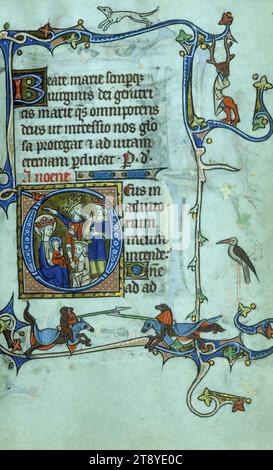 Beate marie semp q3
uirginis dei genitri
cis marie q̃s omnipotens
deus ut intercessio nos glo
sa protegat et ad uitam
eternam p̄ducat. P. d.
A noene.
Deus in
adiuto
rium
meum
intende
Dñe
ad ad
alamy
Image ID: 2T8YE0C
www.alamy.com